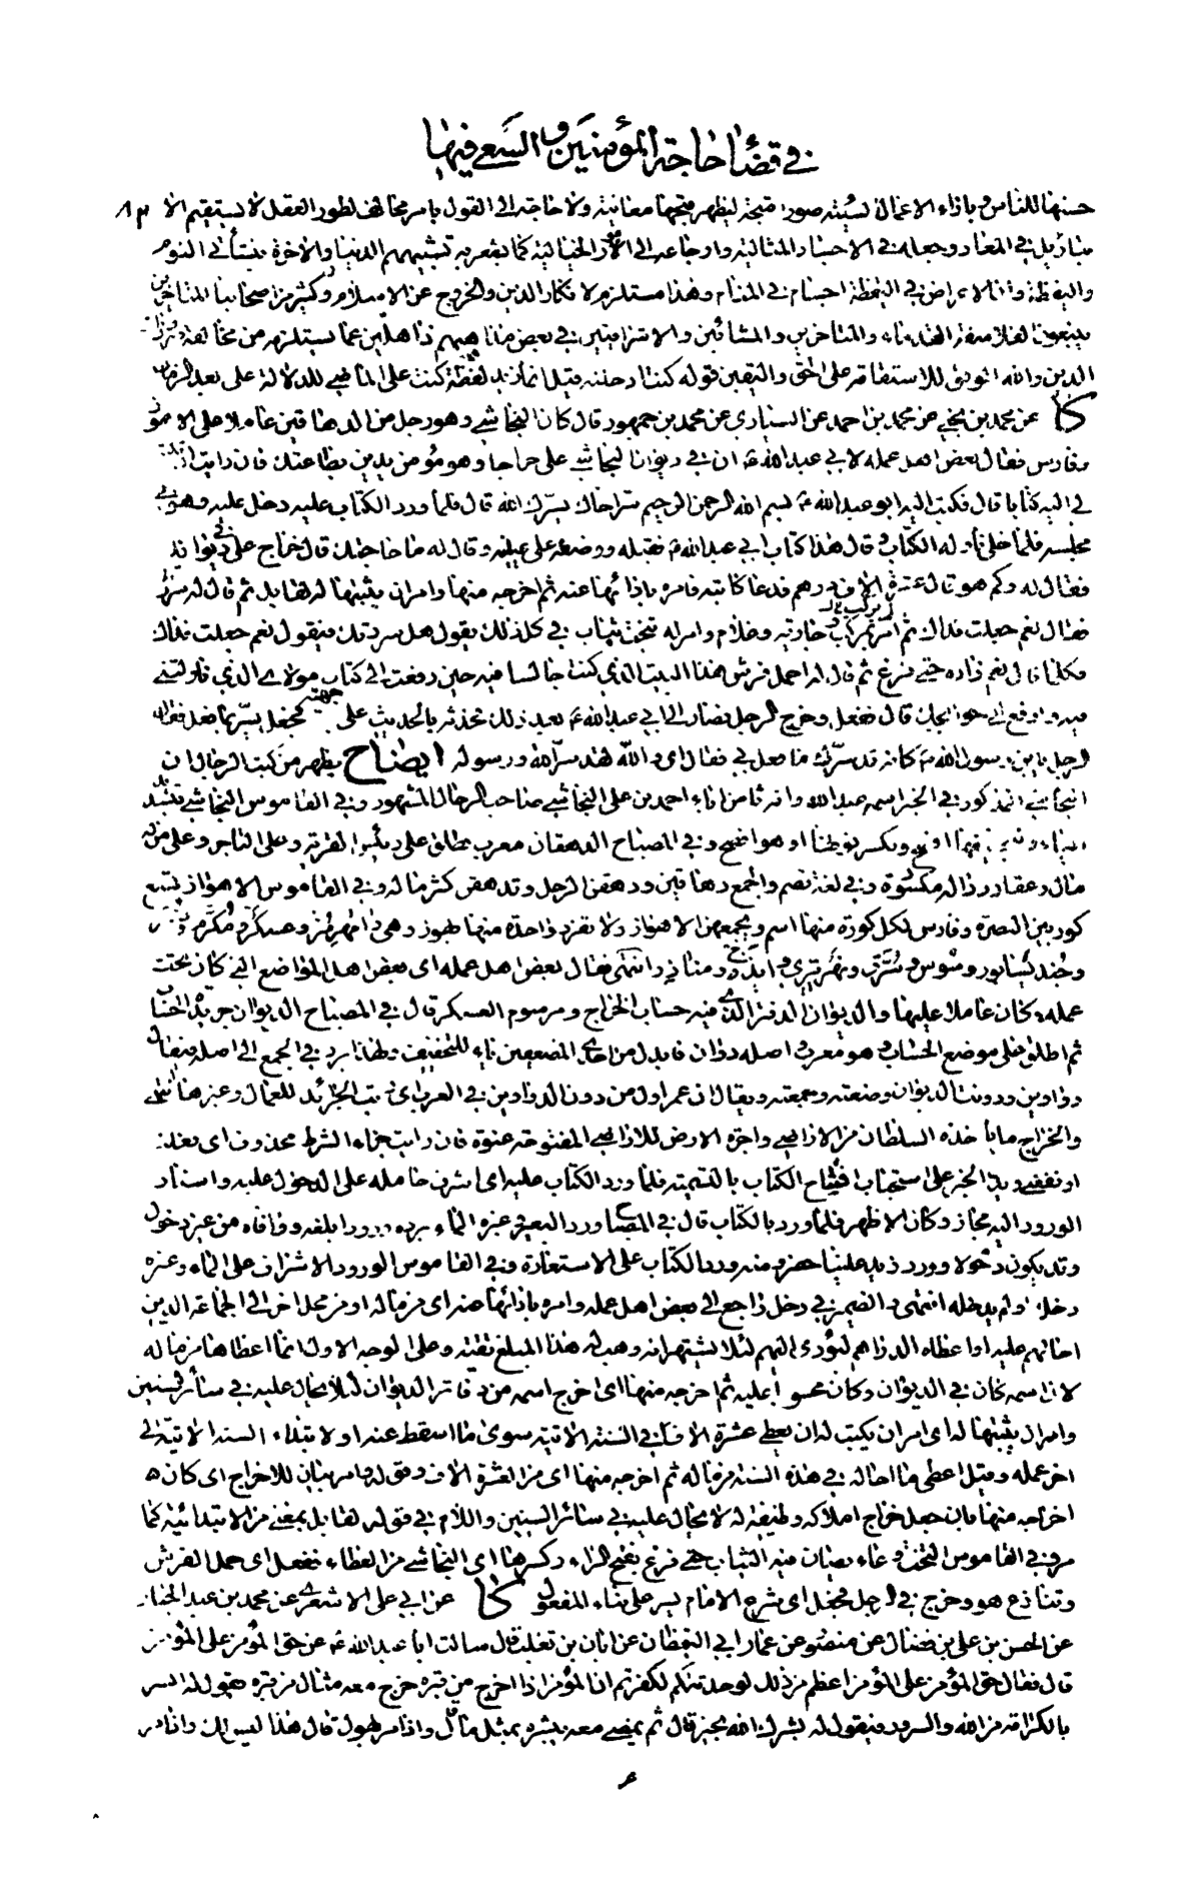 في قضاء حاجة المؤمنين والسعي فيها
حسنها للناس وبازاء الاعمال السيئة صورا قبيحة ليظهر قبحها معاينة ولا حاجة الى القول بامر مخالف لطور العقل لا يستقيم الا ٨٣
بتاويل في المعاد وجعله في الاجساد المثالية وارجاعه الى الامور الخيالية كما يشعر به تشبيههم الدنيا والاخرة بنشأتي النوم
واليقظة وان الاعراض في اليقظة اجسام في المنام وهذا مستلزم لانكار الدين والخروج عن الاسلام وكثير من اصحابنا المتاخرين
يتبعون الفلاسفة القدماء والمتاخرين والمشائين والاشراقيين في بعض مذاهبهم ذاهلين عما يستلزمه من مخالفة ضرورات
الدين والله الموفق للاستقامة على الحق واليقين قوله كنت ادخلته قيل انما زيد لفظة كنت على الماضي للدلالة على بعد الزمان
كا عن محمد بن يحيى عن محمد بن احمد عن السياري عن محمد بن جمهور قال كان النجاشي وهو رجل من الدهاقين عاملا على الاهواز
وفارس فقال بعض اهل عمله لابي عبد الله ع ان في ديوان النجاشي علي خراجا وهو مؤمن يدين بطاعتك فان رايت ان تكتب
لي اليه كتابا قال فكتب اليه ابو عبد الله ع بسم الله الرحمن الرحيم سر اخاك يسرك الله قال فلما ورد الكتاب عليه دخل عليه وهو في
مجلسه فلما خلى ناوله الكتاب وقال هذا كتاب ابي عبد الله ع فقبله ووضعه على عينيه وقال له ما حاجتك قال خراج علي في ديوانك
فقال له وكم هو قال عشرة الاف درهم فدعا كاتبه فامره بادائها عنه ثم اخرجه منها وامر ان يثبتها له لقابل ثم قال له سررتك
فقال نعم جعلت فداك ثم امر له بمركب وجارية وغلام وامر له بتخت ثياب في كل ذلك يقول هل سررتك فيقول نعم جعلت فداك
فكلما قال نعم زاده حتى فرغ ثم قال له احمل فرش هذا البيت الذي كنت جالسا فيه حين دفعت الي كتاب مولاي الذي ناولتني
فيه وارفع الي حوائجك قال ففعل وخرج الرجل فصار الى ابي عبد الله ع بعد ذلك فحدثه بالحديث على جهته فجعل يسر بما فعل فقال
الرجل يابن رسول الله ص كانه قد سرك ما فعل بي فقال اي والله لقد سر الله ورسوله ايضاح يظهر من كتب الرجال ان
النجاشي المذكور في الخبر اسمه عبد الله وانه ثامن اباء احمد بن علي النجاشي صاحب الرجال المشهور وفي القاموس النجاشي بتشديد
الياء وبتخفيفها افصح وبكسر نونها او هو افصح وفي المصباح الدهقان معرب يطلق على رئيس القرية وعلى التاجر وعلى من له
مال وعقار وداله مكسورة وفي لغة تضم والجمع دهاقين ودهقن الرجل وتدهقن كثر ماله وفي القاموس الاهواز تسع
كور بين البصرة وفارس لكل كورة منها اسم ويجمعهن الاهواز ولا تفرد واحدة منها بهوز وهي رامهرمز وعسكر مكرم وتستر
وجندي سابور وسوس وسرق ونهر تيري وايذج ومناذر انتهى فقال بعض اهل عمله اي بعض اهل المواضع التي كان تحت
عمله وكان عاملا عليها والديوان الدفتر الذي فيه حساب الخراج ومرسوم العسكر قال في المصباح الديوان جريدة الحساب
ثم اطلق على موضع الحساب وهو معرب واصله دوان فابدل من احدى المضعفين ياء للتخفيف ولهذا يرد في الجمع الى اصله فيقال
دواوين ودونت الديوان وضعته وجمعته ويقال ان عمر اول من دون الدواوين في العرب اي رتب الجرائد للعمال وغيرها انتهى
والخراج ما ياخذه السلطان من الاراضي واجرة الارض للاراضي المفتوحة عنوة فان رايت جزاء الشرط محذوف اي فعلت
او نفعني ويدل الخبر على استحباب افتتاح الكتاب بالتسمية فلما ورد الكتاب عليه اي اشرف حامله على الدخول عليه واسناد
الورود اليه مجاز وكان الاظهر فلما ورد بالكتاب قال في المصباح ورد البعير وغيره الماء يرده ورودا بلغه ووافاه من غير دخول
وقد يكون دخولا وورد زيد علينا حضر ومنه ورد الكتاب على الاستعارة وفي القاموس الورود الاشراف على الماء وغيره
دخله او لم يدخله انتهى والضمير في دخل راجع الى بعض اهل عمله وامره بادائها عنه اي من ماله او من محل اخر الى الجماعة الذين
احالهم عليه او اعطاه الدراهم ليؤدي اليهم لئلا يشتهر انه وهب له هذا المبلغ تقية وعلى الوجه الاول انما اعطاها من ماله
لان اسمه كان في الديوان وكان محسوبا عليه ثم اخرجه منها اي اخرج اسمه من دفاتر الديوان لئلا يحال عليه في سائر السنين
وامر ان يثبتها له اي امر ان يكتب له ان يعطى عشرة الاف في السنة الاتية سوى ما اسقط عنه او لابتداء السنة الاتية الى
اخر عمله وقيل اعطى ما احاله في هذه السنة من ماله ثم اخرجه منها اي من العشرة الاف وقوله وامر بيان للاخراج اي كان
اخراجه منها بان جعل خراج املاكه وظيفة له لا يحال عليه في سائر السنين واللام في قوله لقابل بمعنى من الابتدائية كما
مر وفي القاموس التخت وعاء يصان فيه الثياب حتى فرغ بفتح الراء وكسرها اي النجاشي من العطاء ففعل اي حمل الفرش
وتنازع هو وخرج في الرجل فجعل اي شرع الامام يسر على بناء المفعول كا عن ابي علي الاشعري عن محمد بن عبد الجبار
عن الحسن بن علي بن فضال عن منصور عن عمار ابي اليقظان عن ابان بن تغلب قال سالت ابا عبد الله ع عن حق المؤمن على المؤمن
قال فقال حق المؤمن على المؤمن اعظم من ذلك لو حدثتكم لكفرتم ان المؤمن اذا اخرج من قبره خرج معه مثال من قبره يقول له ابشر
بالكرامة من الله والسرور فيقول له بشرك الله بخير قال ثم يمضي معه يبشره بمثل ما قال واذا مر بهول قال هذا ليس لك واذا مر